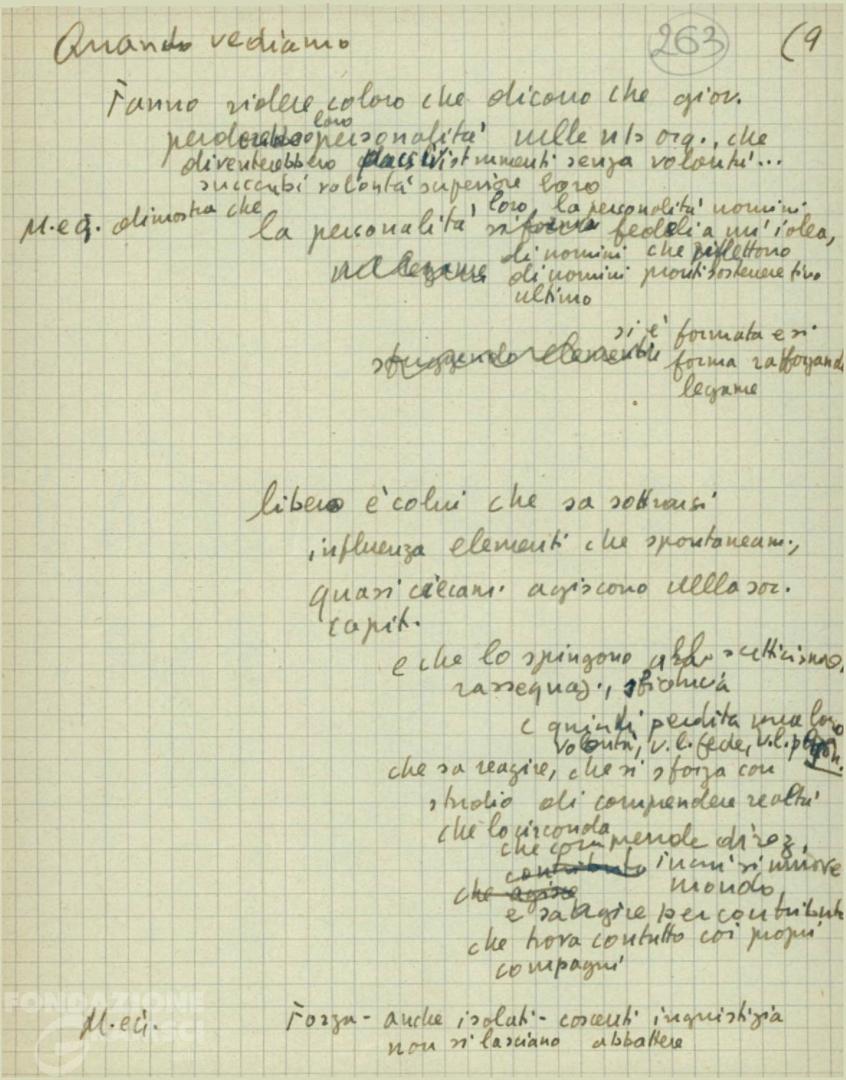 Quando vediamo
263
(9
Fanno ridere coloro che dicono che giov.
perderebbero loro personalità nelle ns org., che
diventerebbero passivi strumenti senza volontà...
succubi volontà superiore loro
M.eg. dimostra che
la personalità loro, la personalità uomini
si forma fedeli a un'idea,
di uomini che riflettono
nel legame di uomini pronti sostenere fino
ultimo
si è formata e si
sfuggendo elementi forma rafforzand
legame
libero è colui che sa sottrarsi
influenza elementi che spontaneam.,
quasi ciecam. agiscono nella soc.
capit.
e che lo spingono allo scetticismo,
rassegnaz., sfiducia
e quindi perdita una loro
volontà, v.l. fede, v.l.
che sa reagire, che si sforza con
studio di comprendere realtà
che lo circonda
che comprende direz.
contributo in cui si muove
che agisce mondo
e sa agire per contribut
che trova contatto coi propri
compagni
M.eg. Forza - anche isolati - coscienti ingiustizia
non si lasciano abbattere
FONDAZIONE